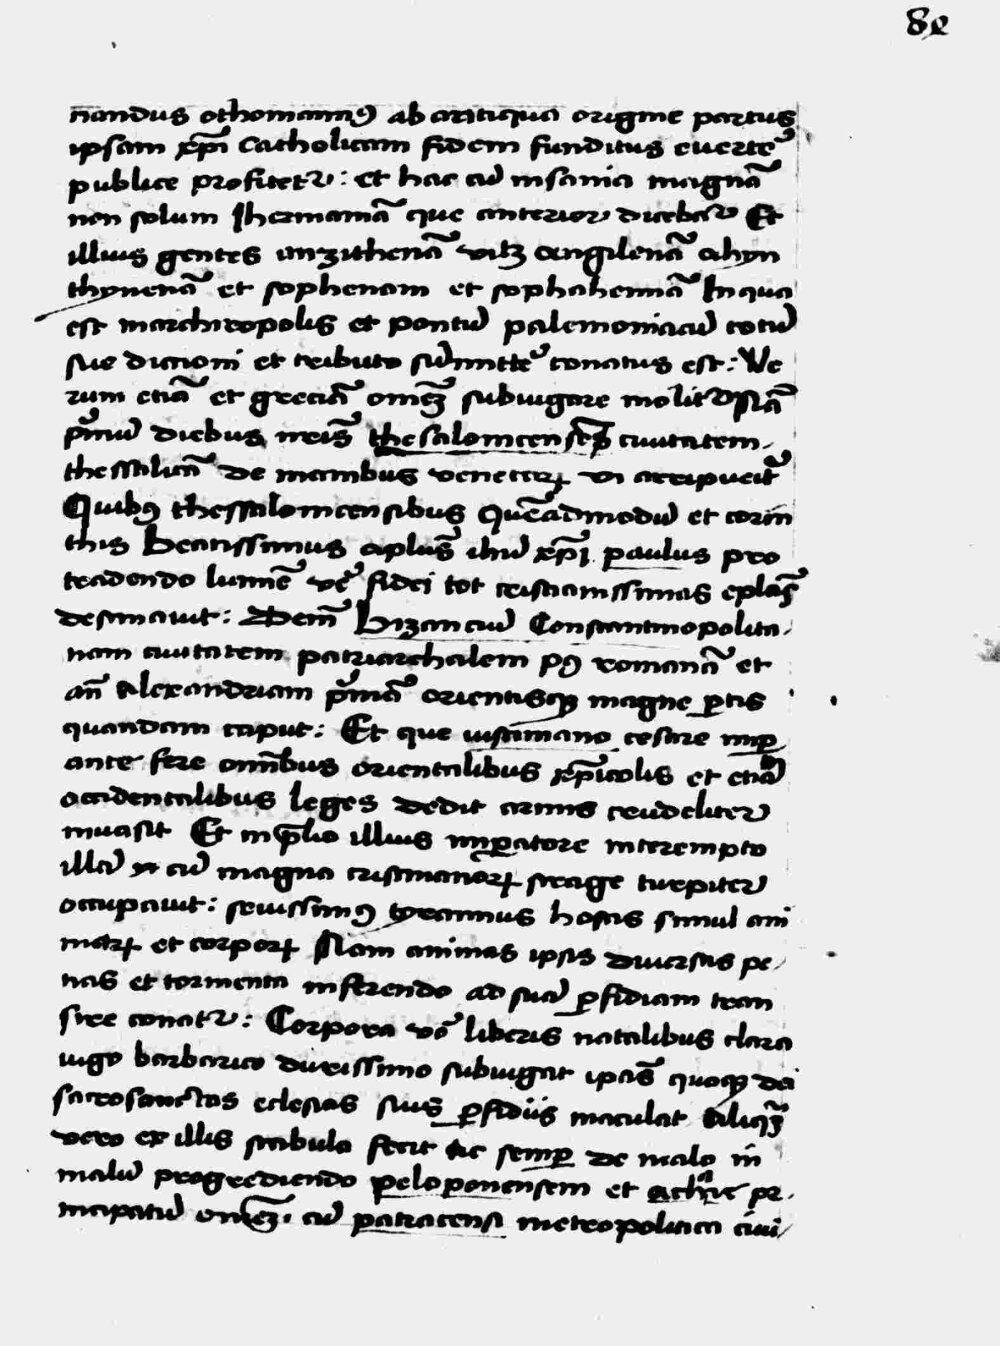 82
nandus othomannꝰ ab antiqua origine partus
ipsam xp̄i Catholicam fidem funditus euerte͛
publice profitet᷑: et hac cū insania magnā
non solum Jhermaniā que anterior dicebat᷑ Et
illius gentes anzithenā vitꝫ angilenā ahyn
thynenā et sophenam et sophahenniā In qua
est marchiopolis et pontū palemoniacū totū
sue diccioni et tributo sūmitte͛ conatus est: Ve
rum etiā et greciā omēꝫ subiugare molit᷑ Nā
p͛miū diebus nr̄is thesalonicensēꝫ ciuitatem
thessalicā de manibus venetoꝝ vi arripueit᷑
Quibꝰ thessalonicensibus Quēadmodū et corin
this Beatissimus apl̄us ihū xp̄i paulus pro
tradendo lumē ve͛ fidei tot cristianissimas epl̄as
destinauit: Dem̄ bizanciū Constantinopolita
nam ciuitatem patriarchalem pꝰ romanā et
an̄ Alexandriam p͛mā orientisqꝫ magne ꝑtis
quandam caput: Et que iustiniano cesare imꝑ
ante fere omībus orientalibus xp̄icolis et etiā
occidentalibus leges dedit armis crudeliter
inuasit Et in p̄lio illius imꝑatore interempto
illā cū magna cristianoꝝ strage turpiter
occupauit: seuissimꝰ tyrannus hostis simul ani
maꝝ et corpoꝝ Nam animas ipsis diuersas pe
nas et tormenta inferendo ad suā ꝑfidiam tran
sire conat᷑: Corpora vo͛ liberis natalibus clara
iugo barbarico durissimo subiugat ipās quoqꝫ dei
sacrosanctas eclesias suis ꝑfidiis maculat Aliqꝫ
vero ex illis stabula fecit ac semꝑ de malo in
malū progrediendo peloponensem et achaie pri
ncipatū omēꝫ cū patracensi metropolitica ciui